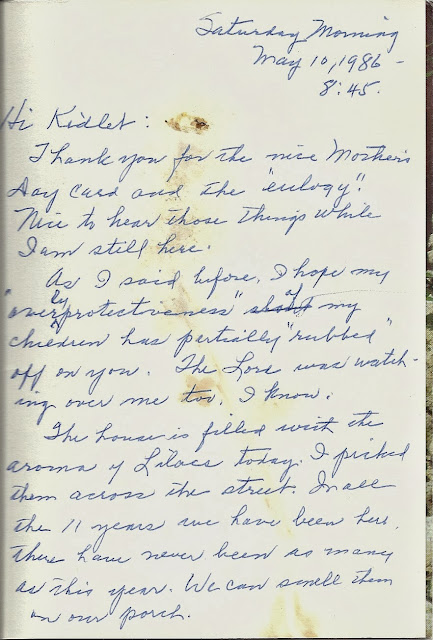 Saturday Morning
May 10, 1986 -
8:45.
Hi Kidlet:
Thank you for the nice Mother's
Day card and the "eulogy".
Nice to hear those things while
I am still here.
As I said before, I hope my
"overlyprotectiveness" of my
children has partially "rubbed"
off on you. The Lord was watch-
ing over me too, I know.
The house is filled with the
aroma of Lilacs today. I picked
them across the street. In all
the 11 years we have been here,
there have never been as many
as this year. We can smell them
on our porch.